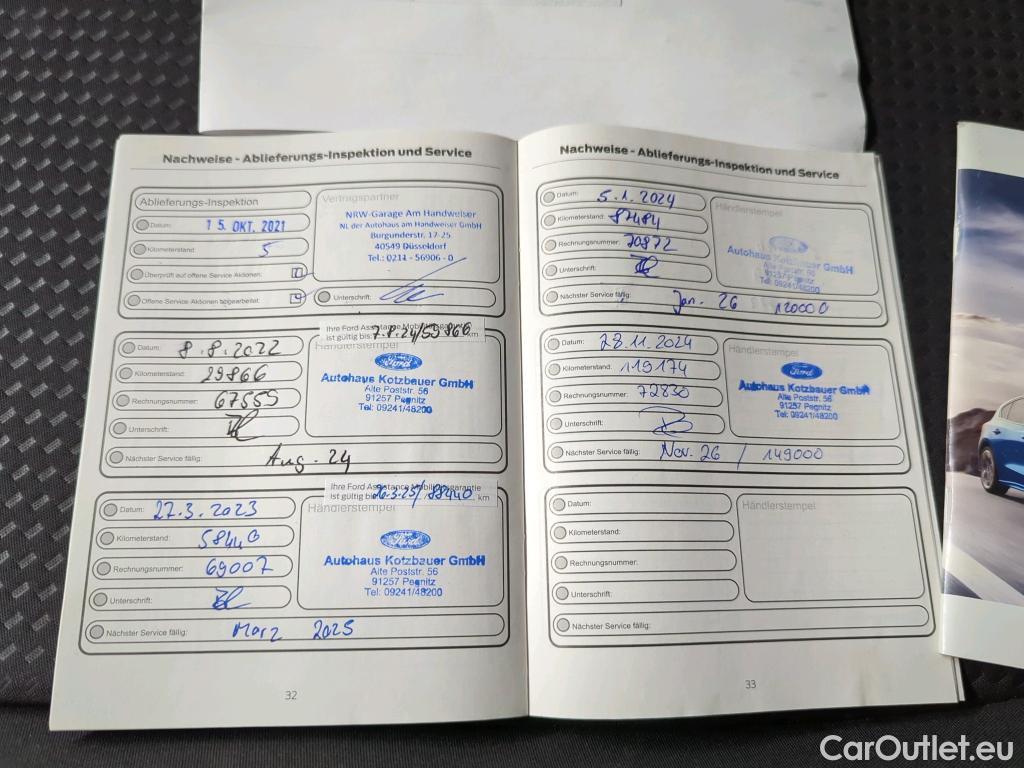 Nachweise - Ablieferungs-Inspektion und Service
Ablieferungs-Inspektion
Datum: 15. OKT. 2021
Kilometerstand: 5
Überprüft auf offene Service Aktionen:
Offene Service Aktionen abgearbeitet:
Vertragspartner
NRW-Garage Am Handweiser
NL der Autohaus am Handweiser GmbH
Burgunderstr. 17-25
40549 Düsseldorf
Tel.: 0211 - 56906 - 0
Unterschrift:
Ihre Ford Assistance Mobilitätsgarantie
ist gültig bis: 7.8.24/59866 km
Datum: 8.8.2022
Kilometerstand: 29866
Rechnungsnummer: 67555
Unterschrift:
Händlerstempel
Ford
Autohaus Kotzbauer GmbH
Alte Poststr. 56
91257 Pegnitz
Tel: 09241/48200
Nächster Service fällig: Aug. 24
Ihre Ford Assistance Mobilitätsgarantie
ist gültig bis 26.3.25/88440 km
Datum: 27.3.2023
Kilometerstand: 58440
Rechnungsnummer: 69007
Unterschrift:
Händlerstempel
Ford
Autohaus Kotzbauer GmbH
Alte Poststr. 56
91257 Pegnitz
Tel: 09241/48200
Nächster Service fällig: März 2025
32
Nachweise - Ablieferungs-Inspektion und Service
Datum: 5.1.2024
Kilometerstand: 87484
Rechnungsnummer: 70872
Unterschrift:
Händlerstempel
Autohaus Kotzbauer GmbH
Alte Poststr. 56
91257 Pegnitz
Tel: 09241/48200
Nächster Service fällig: Jan. 26 120000
Datum: 28.11.2024
Kilometerstand: 119174
Rechnungsnummer: 72830
Unterschrift:
Händlerstempel
Ford
Autohaus Kotzbauer GmbH
Alte Poststr. 56
91257 Pegnitz
Tel: 09241/48200
Nächster Service fällig: Nov. 26 / 149000
Datum:
Kilometerstand:
Rechnungsnummer:
Unterschrift:
Händlerstempel
Nächster Service fällig:
33
CarOutlet.eu